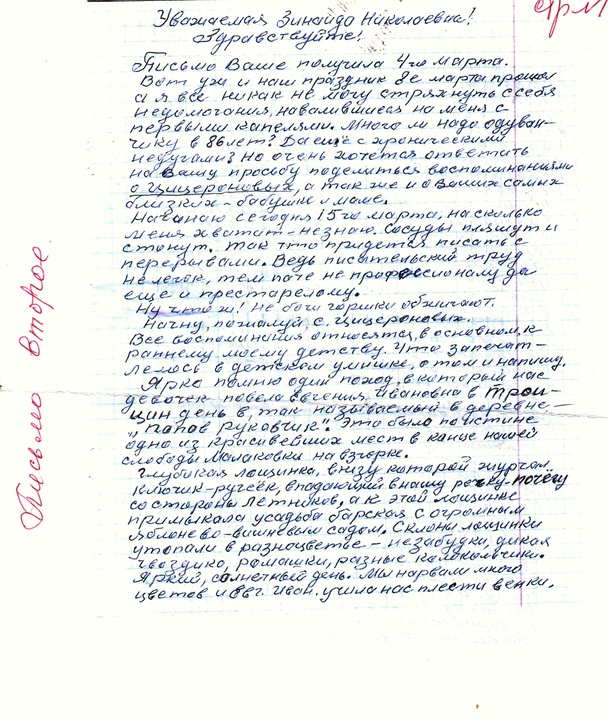 Уважаемая Зинаида Николаевна!
Здравствуйте!
Письмо Ваше получила 4го марта.
Вот уж и наш праздник 8е марта прошел
а я все никак не могу стряхнуть с себя
недомогания, навалившиеся на меня с
первыми капелями. Много ли надо одуван-
чику в 86 лет? Да еще с хроническими
недугами? Но очень хочется ответить
на Вашу просьбу поделиться воспоминаниями
о Цицероновых, а так же и о Ваших самых
близких - бабушке и маме.
Начинаю сегодня 15го марта, насколько
меня хватит - не знаю. Сосуды пляшут и
стонут. так что придется писать с
перерывами. Ведь писательский труд
не легок, тем паче не профессионалу да
еще и престарелому.
Ну что ж! Не боги горшки обжигают.
Начну, пожалуй, с Цицероновых.
Все воспоминания относятся, в основном, к
раннему моему детству. Что запечат-
лелось в детском умишке, о том и напишу.
Ярко помню один поход, в который нас
девочек повела Евгения Ивановна в Трои-
цин день в, так называемый в деревне, -
„Попов Руковчик". Это было поистине
одно из красивейших мест в конце нашей
слободы Малаковки на взгорке.
Глубокая лощинка, внизу которой журчал
ключик-ручеёк, впадающий в нашу речку-Почегу
со стороны Летников, а к этой лощине
примыкала усадьба барская с огромным
яблонево-вишневым садом. Склоны лощинки
утопали в разноцветье - незабудка, дикая
гвоздика, ромашки, разные колокольчики.
Яркий, солнечный день. Мы нарвали много
цветов и Евг. Иван. учила нас плести венки.
Письмо второе.